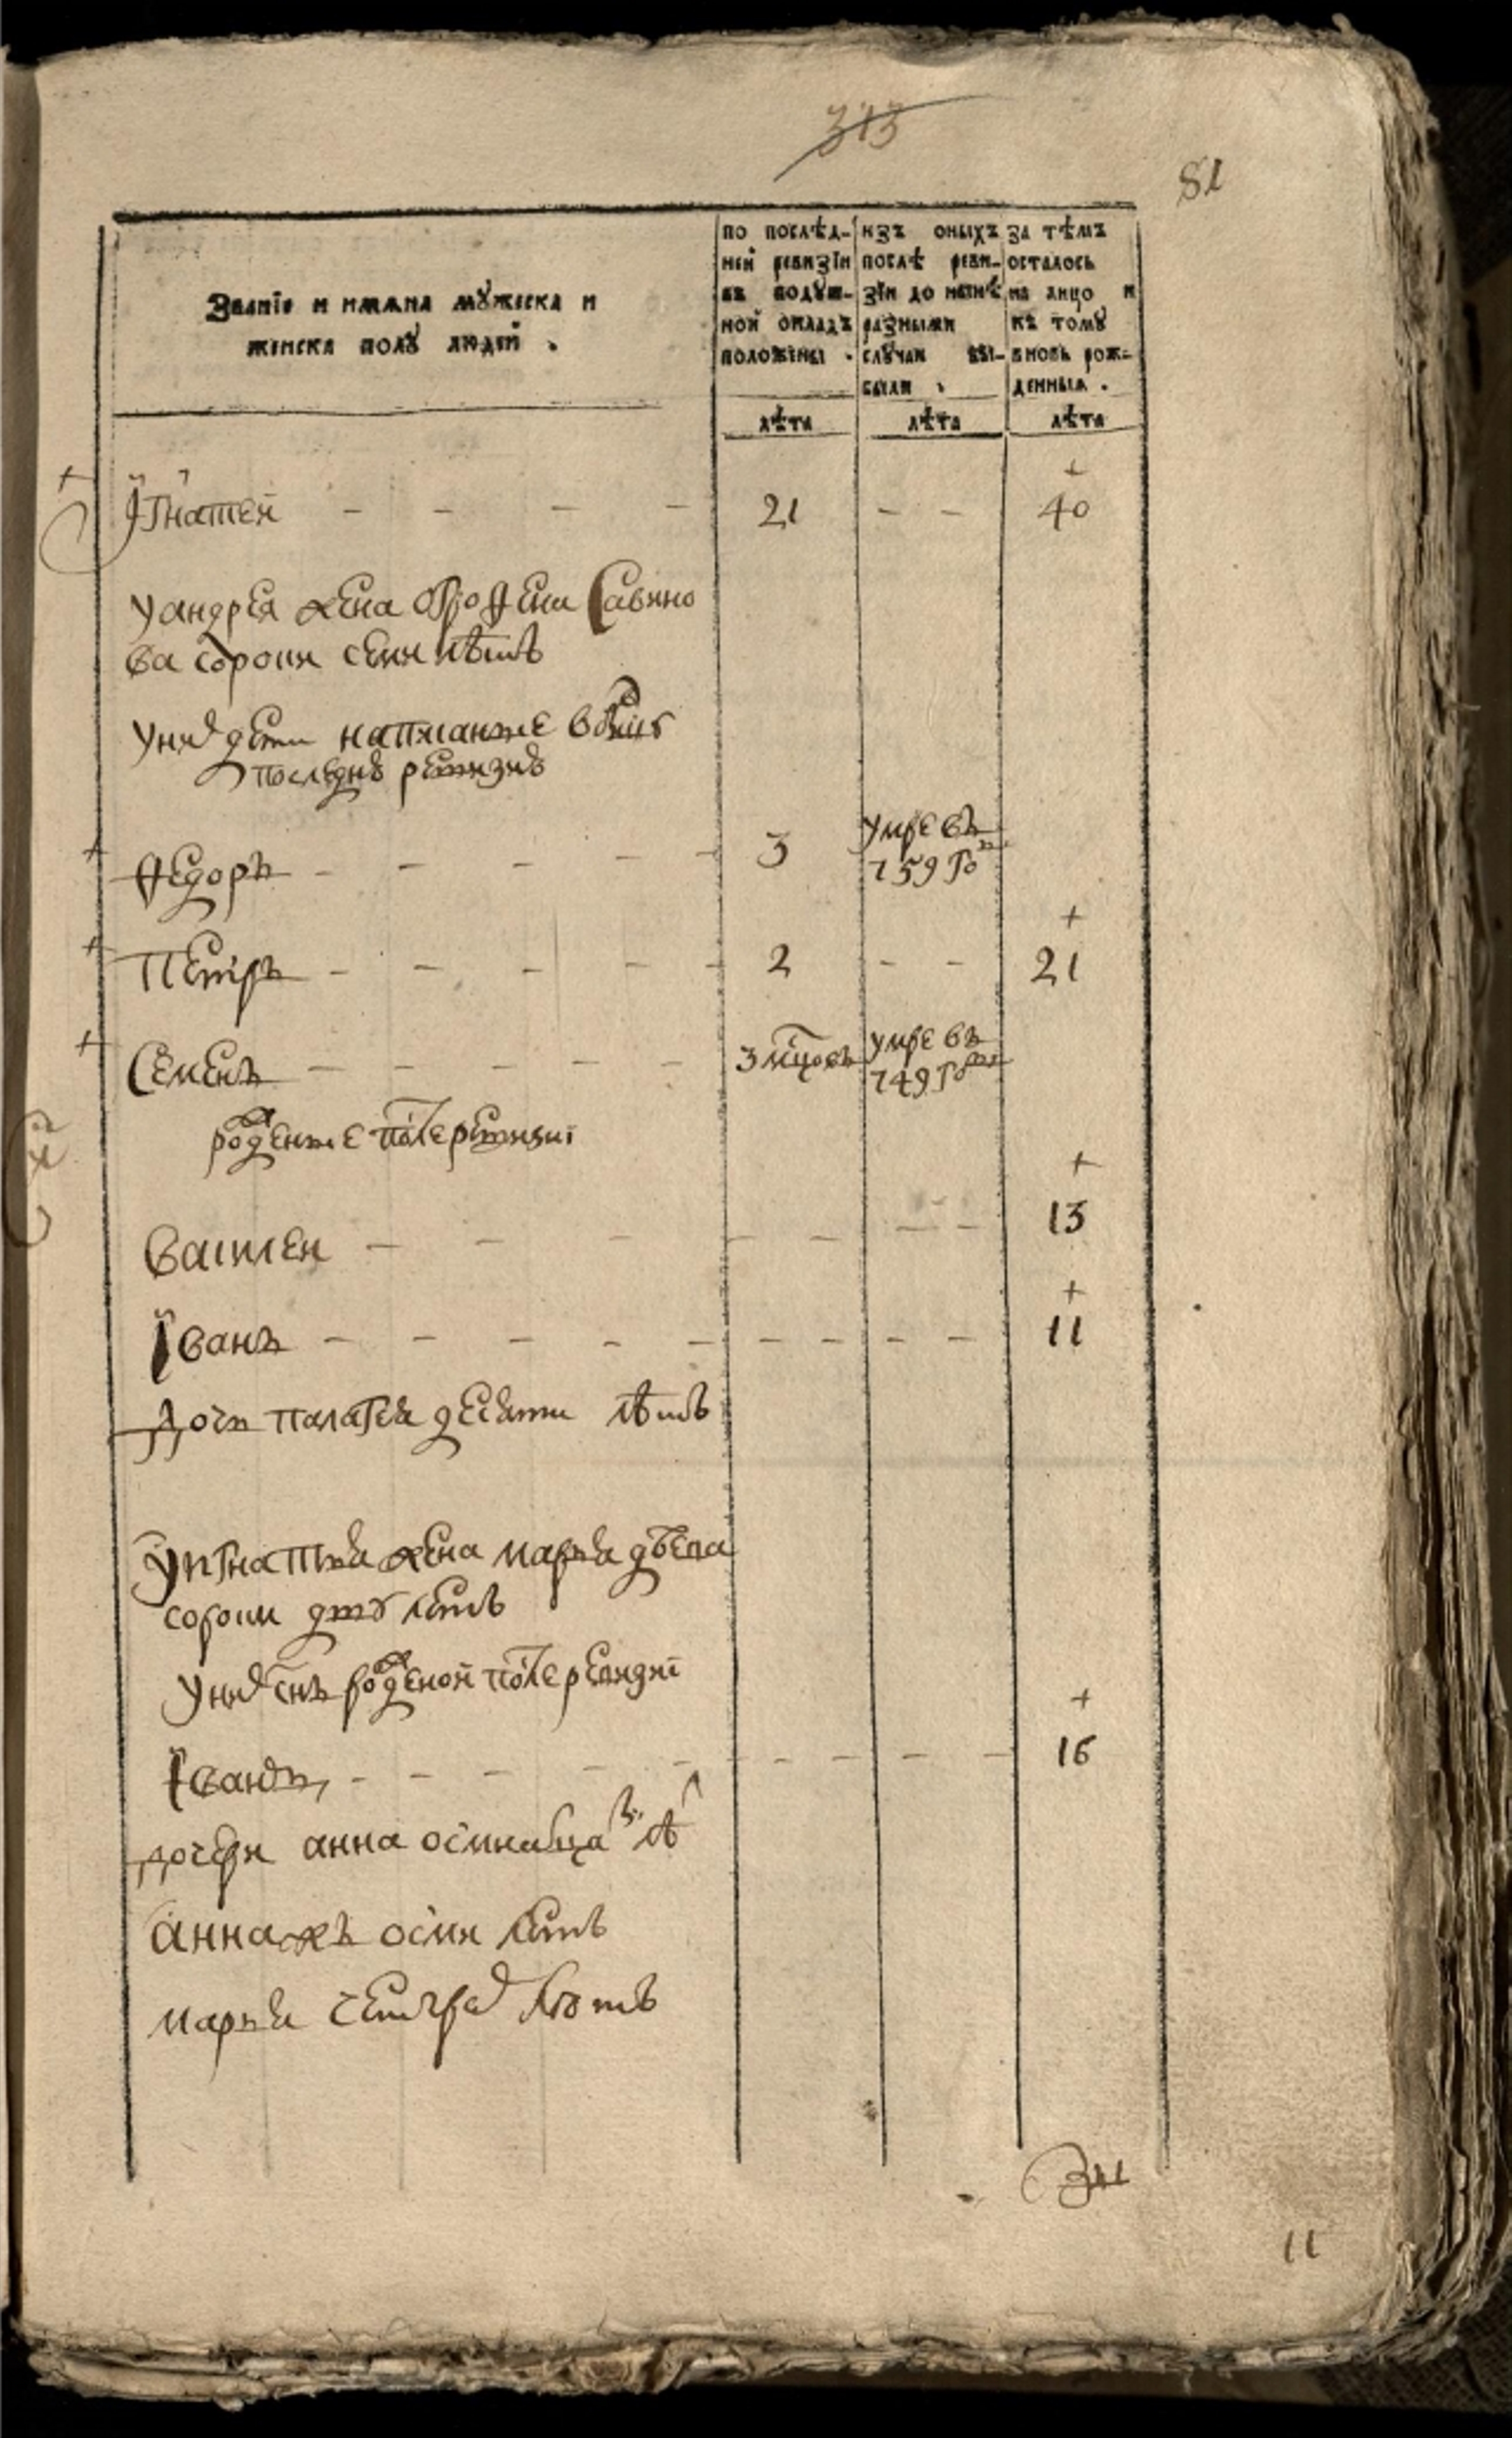 313
81
Званїе и имяна мꙋжеска и
женска полꙋ людей .
по послѣд-
ней ревизїи
въ подꙋш-
ной окладъ
положены .
изъ оныхъ
послѣ реви-
зїи до нынѣ
разными
слꙋчаи вы-
были .
за тѣмъ
осталось
на лицо и
къ томꙋ
вновь рож-
денныя .
лѣта лѣта лѣта
Їгнатей - - - - 21 - - 40
у андрея жена Савино
ва сорокѝ семи лѣтъ
у них дети написанные в
последнѣ ревизиѣ
Федоръ - - - - - 3 умре въ
759 го
Петръ - - - - - 2 - - 21
Семенъ - - - - - 3 мцовъ умре въ
749 го
рожденные после ревизиї
Василей - - - - - - - 13
Їванъ - - - - - - - - - 11
Дочь палагея десяти лѣтъ
у игнатья жена марья
сороки двꙋ летъ
у них снъ рожденой после ревизиї
Їванъ - - - - - - - - - - 16
дочери анна осмнатца лѣ
анна жъ осми летъ
марья четырех лѣтъ
11